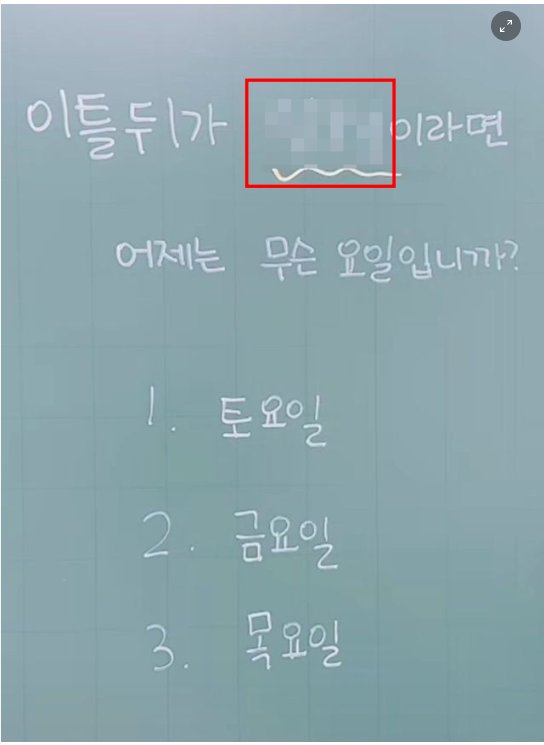 이틀뒤가 이라면
어제는 무슨 요일입니까?
1. 토요일
2. 금요일
3. 목요일